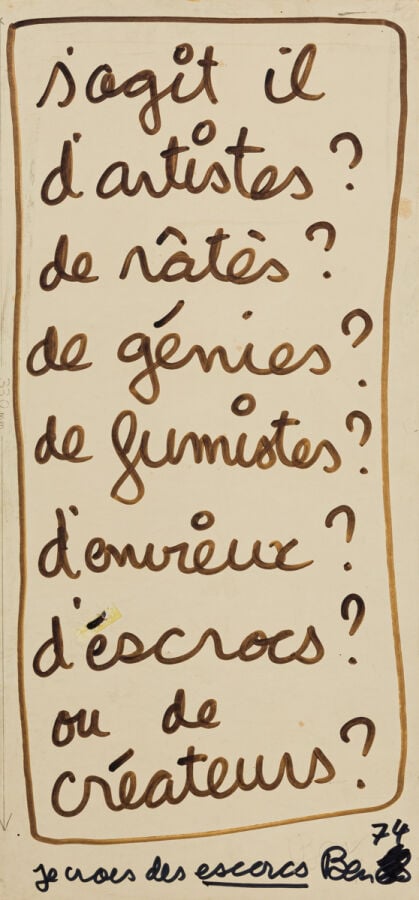 s'agit il
d'artistes ?
de râtès ?
de génies ?
de fumistes ?
d'envieux ?
d'éscrocs ?
ou de
créateurs ?
74
je crois des escorcs Ben